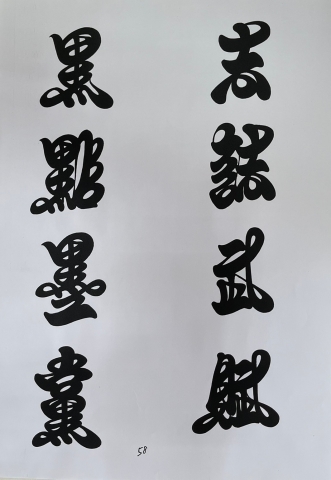 志誌武賦
黑點墨黨
58